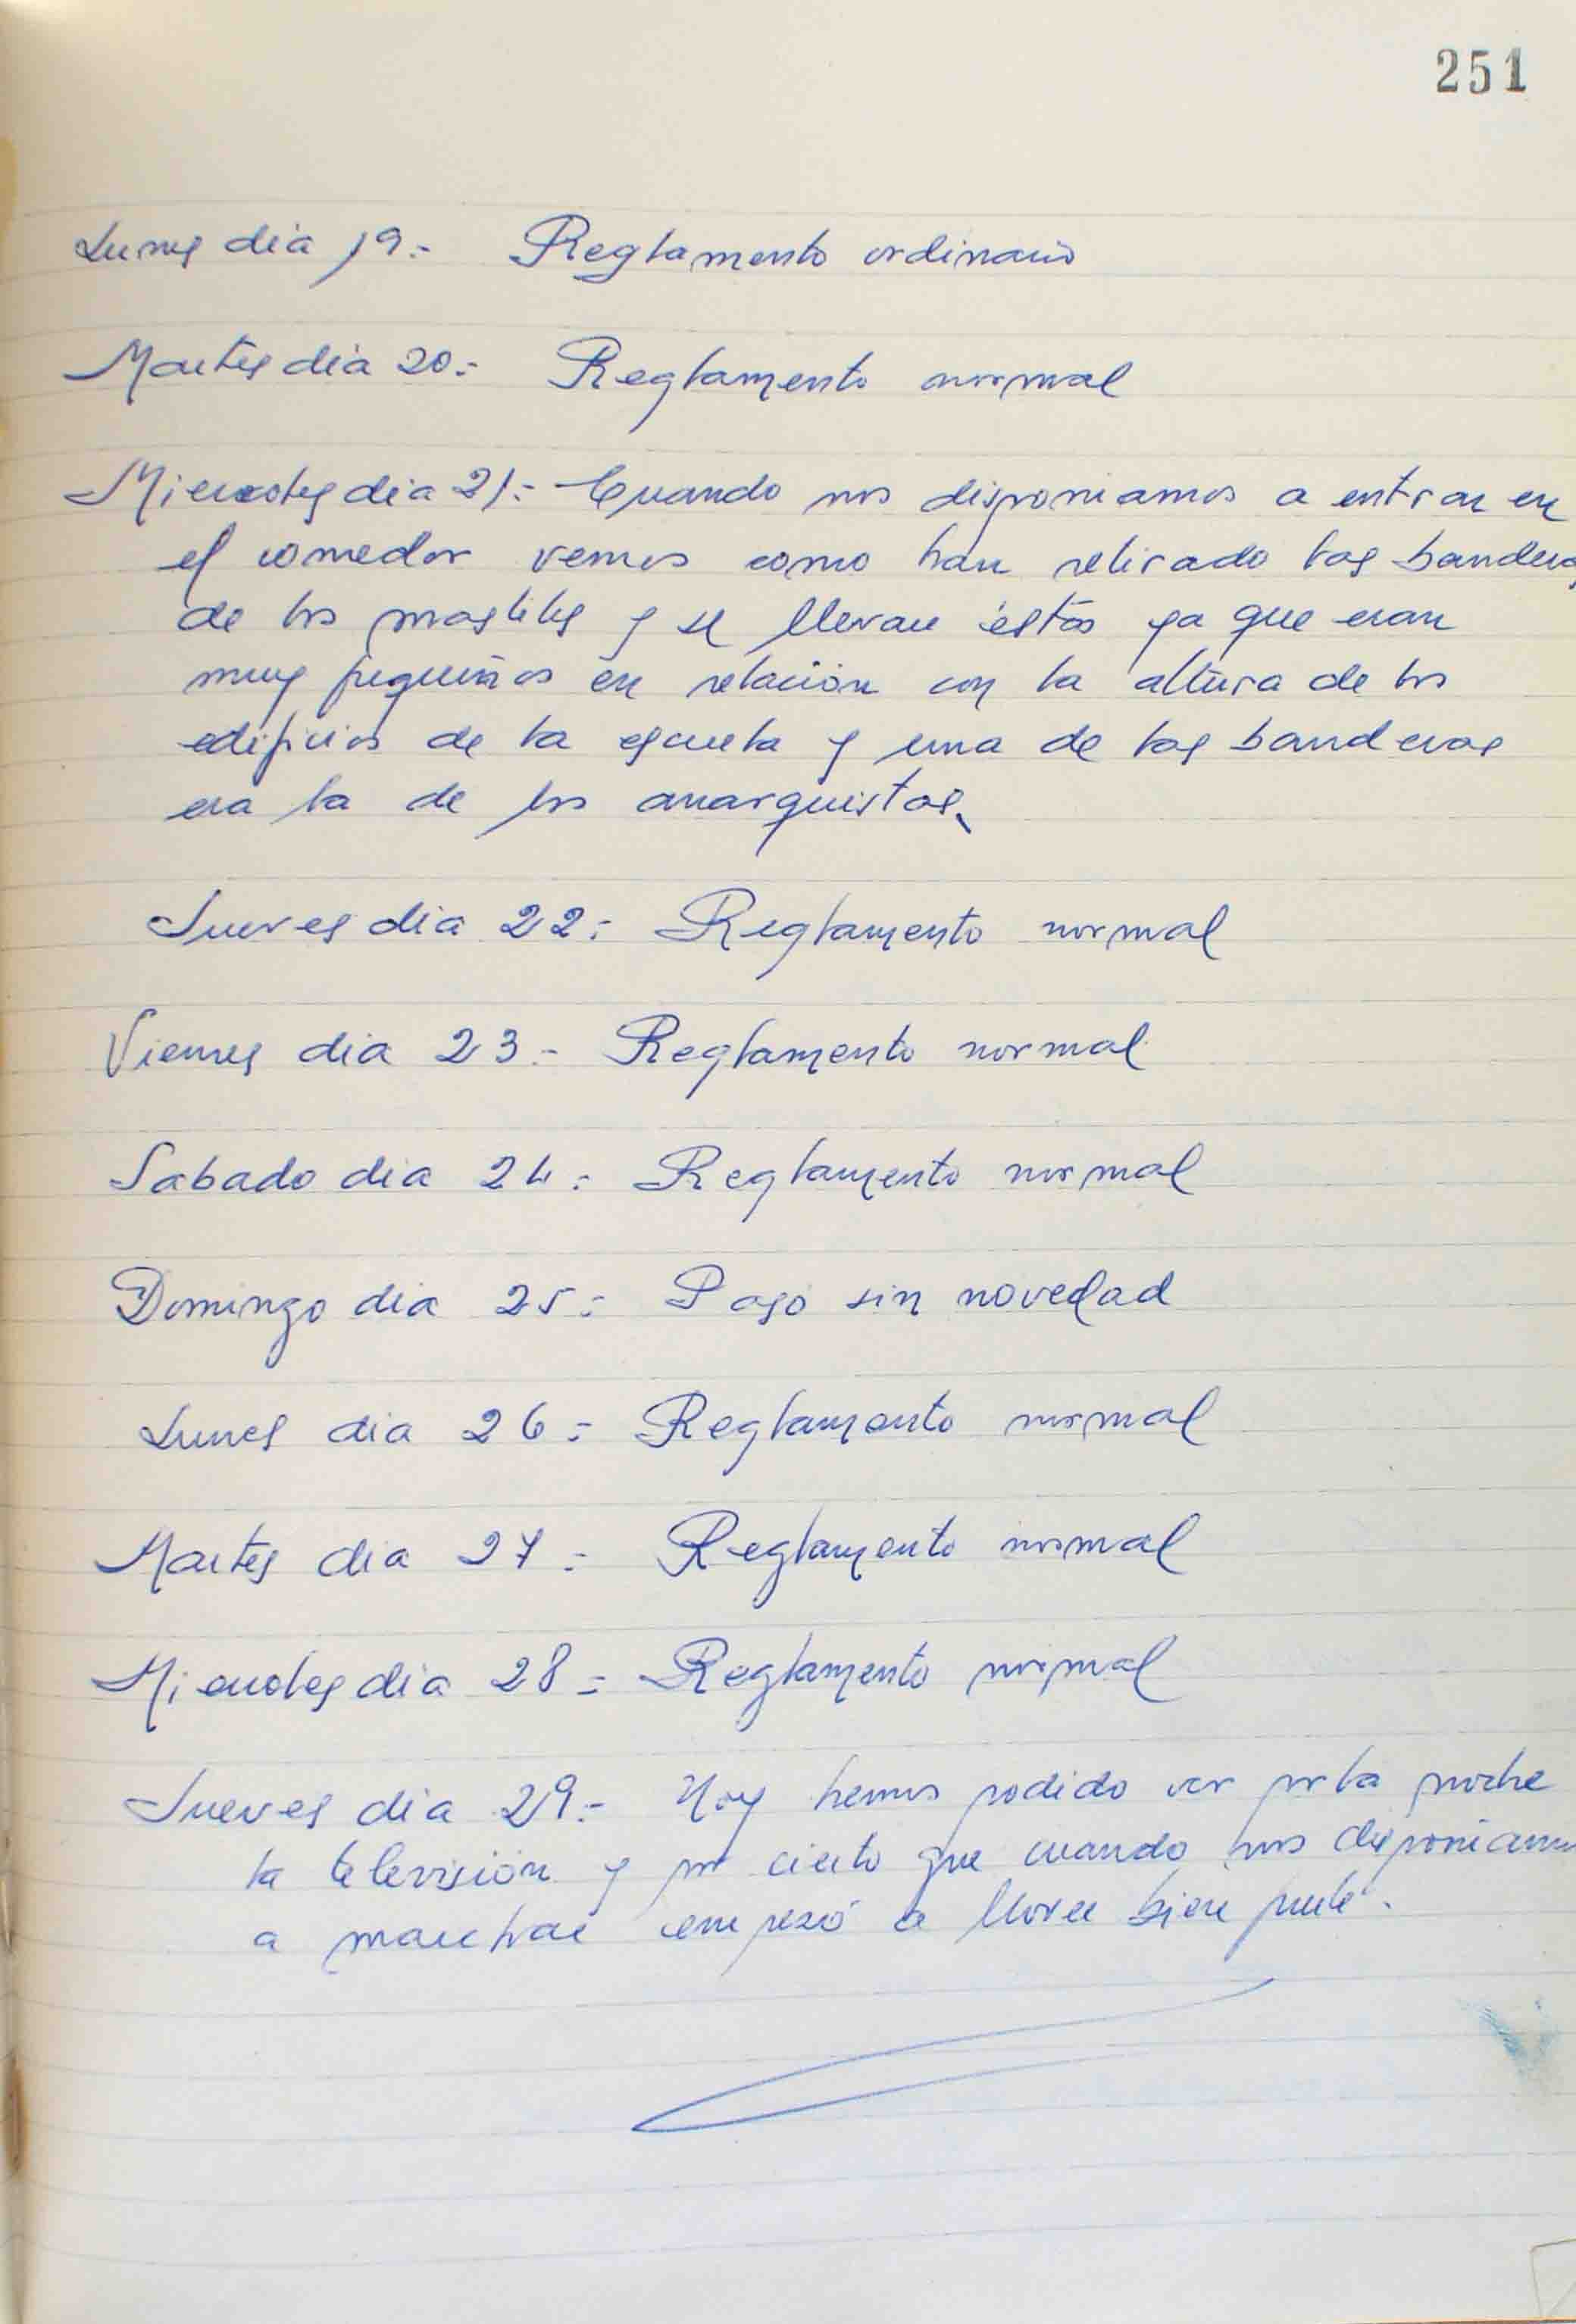 251
Lunes dia 19.- Reglamento ordinario
Martes dia 20.- Reglamento normal
Miercoles dia 21.- Cuando nos disponiamos a entrar en
el comedor vemos como han retirado las banderas
de los mastiles y se llevan éstos ya que eran
muy pequeños en relación con la altura de los
edificios de la escuela y una de las banderas
era la de los anarquistas.
Jueves dia 22.- Reglamento normal
Viernes dia 23.- Reglamento normal
Sabado dia 24.- Reglamento normal
Domingo dia 25.- Paso sin novedad
Lunes dia 26.- Reglamento normal
Martes dia 27.- Reglamento normal
Miercoles dia 28.- Reglamento normal
Jueves dia 29.- Hoy hemos podido ver por la noche
la televisión y por cierto que cuando nos disponiamos
a marchar empezó a llover bien fuerte.